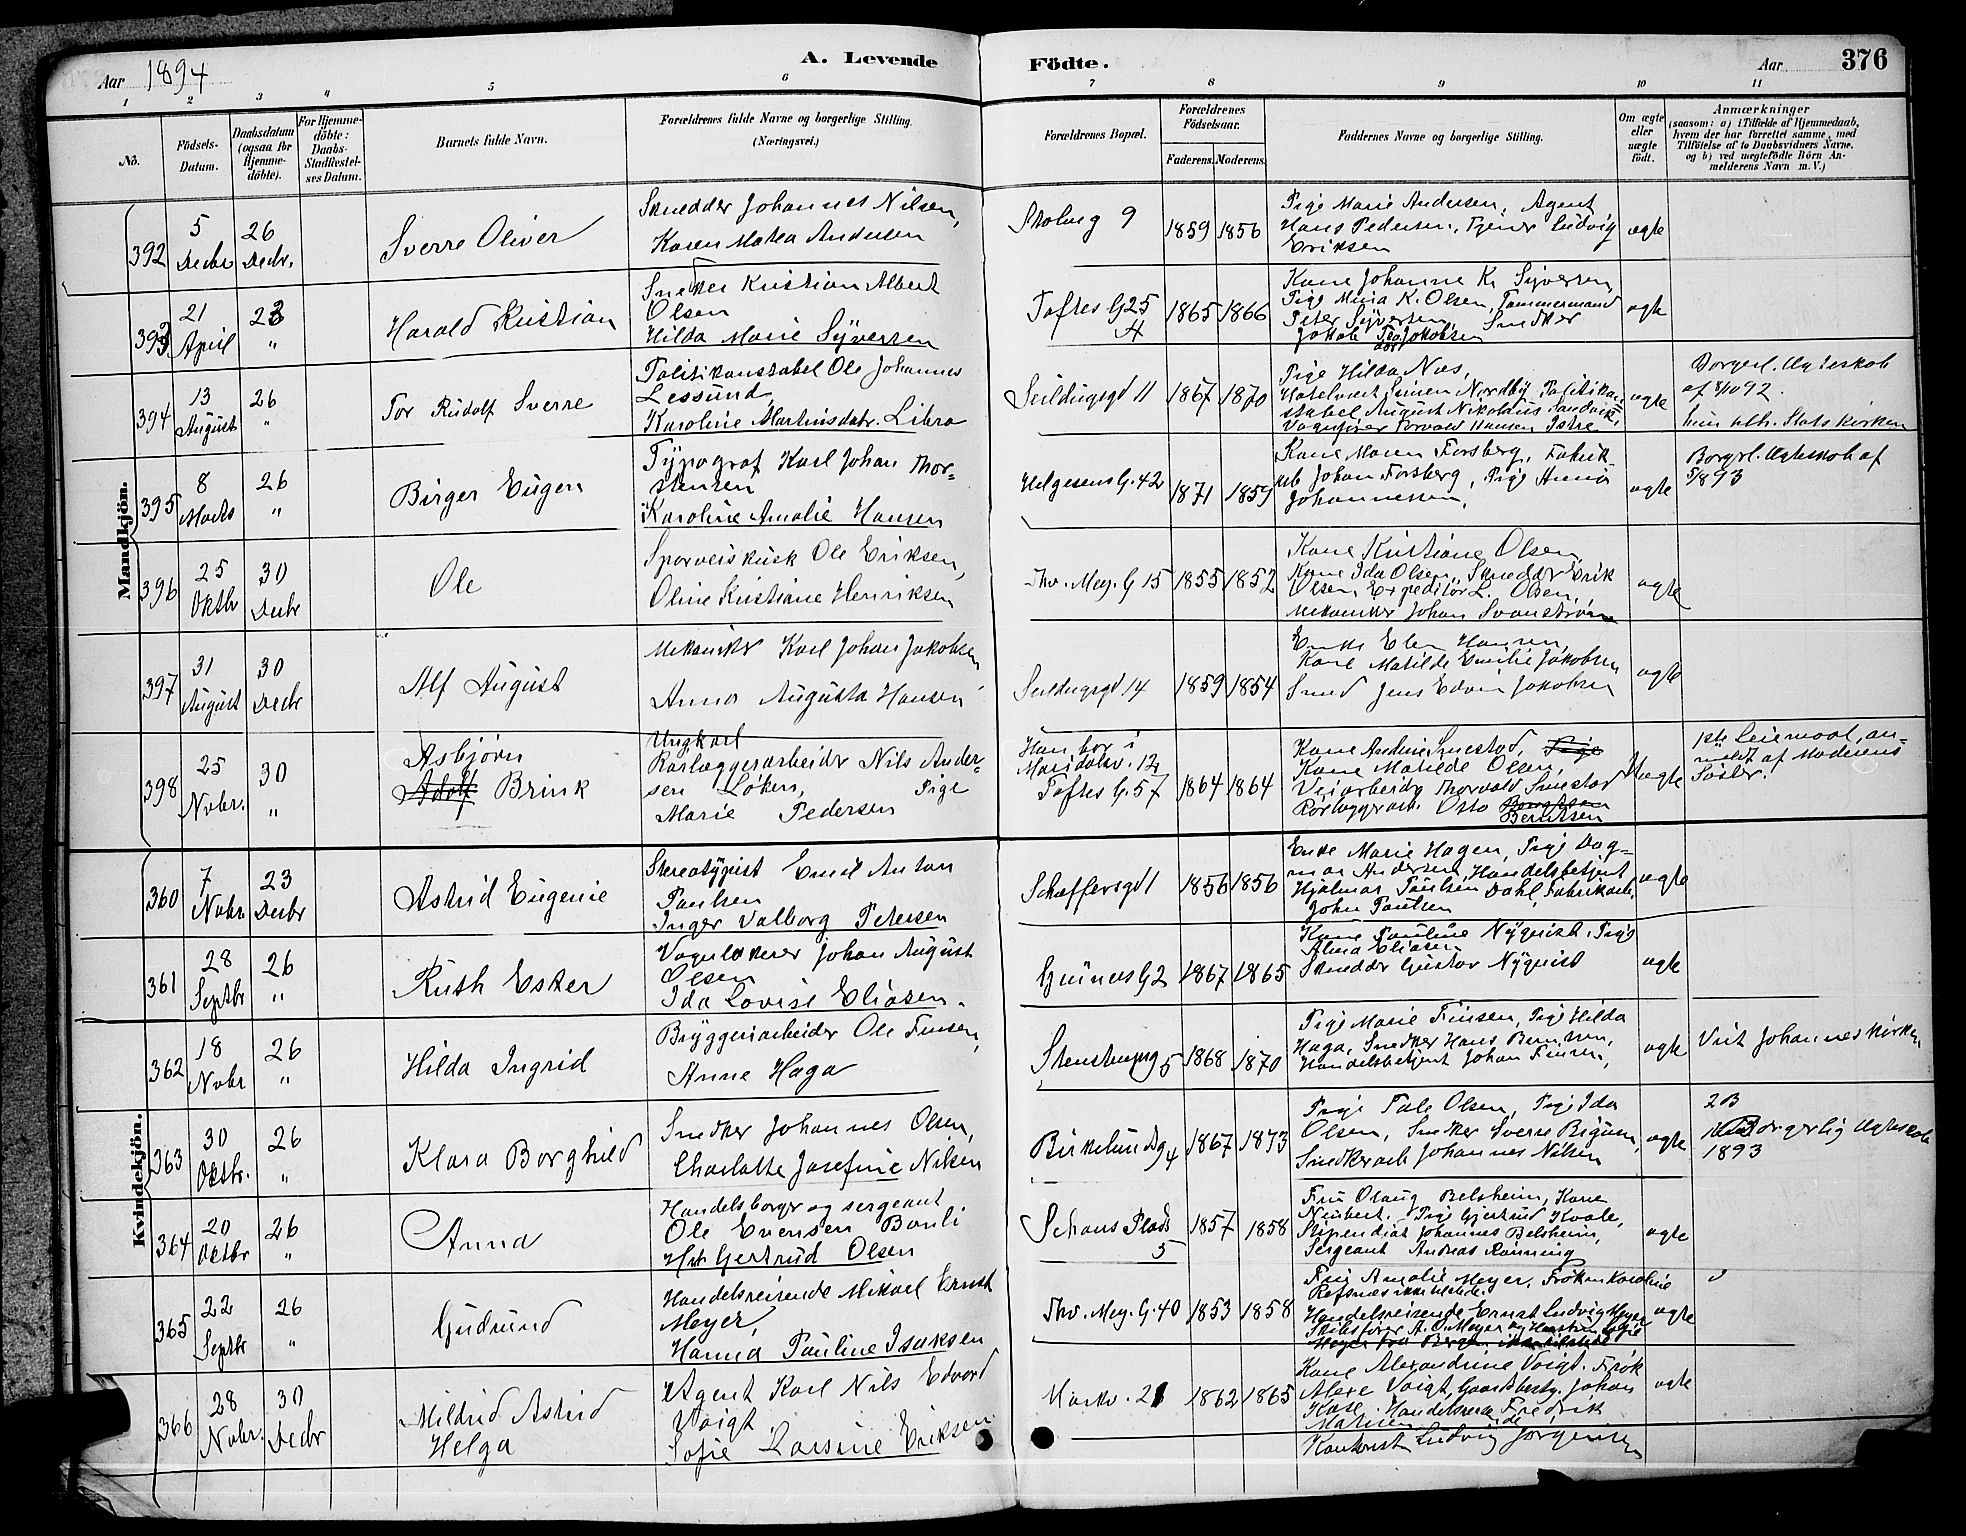 Aar 1894
A. Levende Födte.
Aar 376
1 2 3 4 5 6 7 8 9 10 11
No.
Födsels-Datum.
Daabsdatum (ogsaa for Hjemme-döbte).
For Hjemme-döbte: Daabs-Stadfæstel-ses Datum.
Barnets fulde Navn.
Forældrenes fulde Navne og borgerlige Stilling.
(Næringsvei.)
Forældrenes Bopæl.
Forældrenes Födselsaar.
Faderens. Moderens.
Faddernes Navne og borgerlige Stilling.
Om ægte eller uægte födt.
Anmærkninger
(saasom: a) i Tilfælde af Hjemmedaab,
hvem der har forrettet samme, med
Tilföielse af to Daabsvidners Navne,
og b) ved uægtefödte Börn An-
melderens Navn m. V.)
Mandkjön.
392 5 Decbr 26 Decbr. Sverre Oliver
Skrædder Johannes Nilsen,
Karen Mathea Andersen
9 1859 1856
Pige Marie Andersen, Agent
Hans Pedersen, Tjener Ludvig
Eriksen
ægte
393 21 April 23 " Harald Kristian
Snedker Kristian Albert
Olsen
Hilda Marie Syversen
Toftes G 25
4
1865 1866
Kone Johanne K. Syversen,
Pige Mina K. Olsen, Tømmermand
Peter Syversen, Snedker
Jakob Jakobsen
ægte
394 13 August 26 " Tor Rudolf Sverre
Politikonstabel Ole Johannes
Lessund,
Karoline Martinsdatr. Libro
Seildugsgd 11 1867 1870
Pige Hilda Næs,
Hotelvært Simen Nordby, Politikon-
stabel August Nikolaus Sandvik,
Vognfører Torvald Hansen
ægte
Borgerl. Ægteskab
af 92.
hun tilh. Statskirken
395 8 Marts 26 " Birger Eugen
Typograf Karl Johan Thor-
stensen
Karoline Amalie Hansen
Helgesens G. 42 1871 1859
Kone Maren Forsberg, Fabrik
arb Johan Forsberg, Pige Anna
Johannessen,
ægte
Borgerl. Ægteskab af
5/893
396 25 Oktbr 30 Decbr Ole
Sporveiskusk Ole Eriksen,
Oline Kristiane Henriksen
Thv. Mey. G 15 1855 1852
Kone Kristiane Olsen,
Kone Ida Olsen, Skrædder Erik
Olsen, Expeditør L. Olsen,
Mekaniker Johan Svanstrøm
ægte
397 31 August 30 Decbr Alf August
Mekaniker Karl Johan Jakobsen
Anna Augusta Hansen
Seildugsgd 14 1859 1854
Enke Elen Hansen,
Kone Matilde Emilie Jakobsen
Smed Jens Edvin Jakobsen
ægte
398 25 Novbr. 30 " Asbjørn
Adolf Brink
Ungkarl
Rørlæggerarbeider Nils Ander-
sen Løken, Pige
Marie Pedersen
Han bor i
Maridalsv. 12
Toftes G. 57
1864 1864
Kone Andrine Smestad, Pige
Kone Matilde Olsen,
Veiarbeider Thorvald Smestad
Rørlæggerarb. Otto
Berntsen
Uægte
1ste Leiermaal, an-
meldt af Moderens
Søster.
Kvindekjön.
360 7 Novbr 23 Decbr Astrid Eugenie
Stereotypist Emil Anton
Paulsen
Inger Valborg Petersen
Schaffersgd 1 1856 1856
Enke Marie Hagen, Pige Dag-
mar Andersen, Handelsbetjent
Hjalmar Paulsen Dahl, Fabrikarb.
John Paulsen
ægte
361 28 Septbr 26 " Ruth Ester
Vognlakerer Johan August
Olsen
Ida Lovise Eliasen.
Grünersg 2 1867 1865
Kone Pauline Nyquist, Pige
Alma Eliasen
Skrædder Gustav Nyquist
ægte
362 18 Novbr 26 " Hilda Ingrid
Bryggeriarbeider Ole Finsen,
Anne Haga
Stenstrupg 5 1868 1870
Pige Marie Finsen, Pige Hilda
Haga, Snedker Hans
Handelsbetjent Johan Finsen,
ægte
Viet Johanneskirken
363 30 Oktbr. 26 " Klara Borghild
Snedker Johannes Olsen,
Charlotte Josefine Nilsen
Birkelundg 4 1867 1873
Pige Tale Olsen, Pige Ida
Olsen, Snedker Sverre
Snedkerarb Johannes Nilsen
ægte
2B
Borgerlig Ægteskab
1893
364 20 Oktbr 26 " Anna
Handelsborger og sergeant
Ole Evensen Bonli
Gertrud Olsen
Schous Plads
5
1857 1858
Fru Olaug Belsheim, Kone
Neubert, Pige Gjertrud Kvale,
Stipendiat Johannes Belsheim,
Sergeant Andreas Rønning
ægte
365 22 Septbr 26 " Gudrund
Handelsreisende Mikael Ernst
Meyer,
Hanna Pauline Isaksen
Thv. Mey. G. 40 1853 1858
Amalie Meyer, Frøken Karoline
Refsnes
Handelsreisende Ernst Ludvig Meyer
Skibsfører A. O. Meyer
ægte
366 28 Novbr. 30 Decbr Mildrid Astrid
Helga
Agent Karl Nils Edvard
Voigt
Sofie Larsine Eriksen
Markv. 21 1862 1865
Kone Alexandrine Voigt, Frøk
Voigt, Gaardbestyr. Johan
Handelsreisende Fredrik
Kontorist Ludvig Jørgensen
ægte